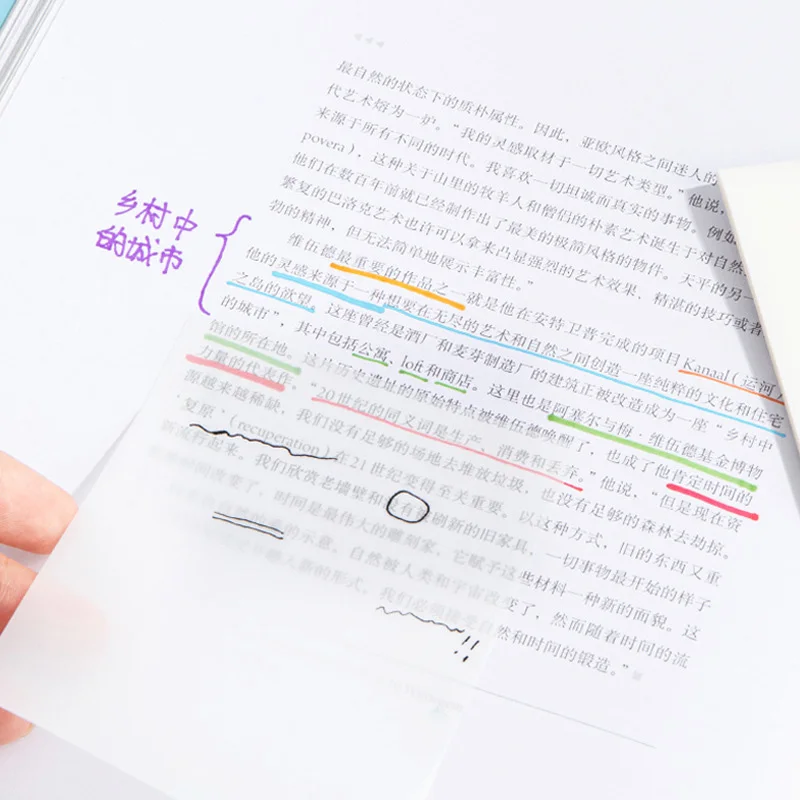 最自然的状态下的质朴属性。因此，亚欧风格之间迷人的
代艺术熔为一炉。“我的灵感取材于一切艺术类型。”他说，
来源于所有不同的时代。我喜欢一切坦诚而真实的事物。例如
povera），这种关于山里的牧羊人和僧侣的朴素艺术诞生于对自然
他们在数百年前就已经制作出了最美的极简风格的物件。天平的另一
繁复的巴洛克艺术也许可以拿来凸显强烈的艺术效果，精湛的技巧或者
勃的精神，但无法简单地展示丰富性。”
乡村中
的城市
维伍德最重要的作品之一就是他在安特卫普完成的项目Kanaal（运河）
他的灵感来源于一种想要在无尽的艺术和自然之间创造一座纯粹的文化和住宅
之岛的欲望。这座曾经是酒厂和麦芽制造厂的建筑正被改造成为一座“乡村中
的城市”，其中包括公寓、loft和商店。这里也是阿塞尔与梅·维伍德基金博物
馆的所在地。这片历史遗址的原始特点被维伍德唤醒了，也成了他肯定时间的
力量的代表作。“20世纪的同义词是生产、消费和丢弃。”他说，“但是现在资
源越来越稀缺，我们没有足够的场地去堆放垃圾，也没有足够的森林去劫掠。
‘复原’（recuperation）在21世纪变得至关重要。以这种方式，旧的东西又重
新流行起来。我们欣赏老墙壁和没有被刷新的旧家具，一切事物最开始的样子
改变了，时间是最伟大的雕刻家，它赋予这些材料一种新的面貌。这
的示意。自然被人类和宇宙改变了，然而随着时间的流
新的形式，我们必须接受自然和时间的锻造。”
!!